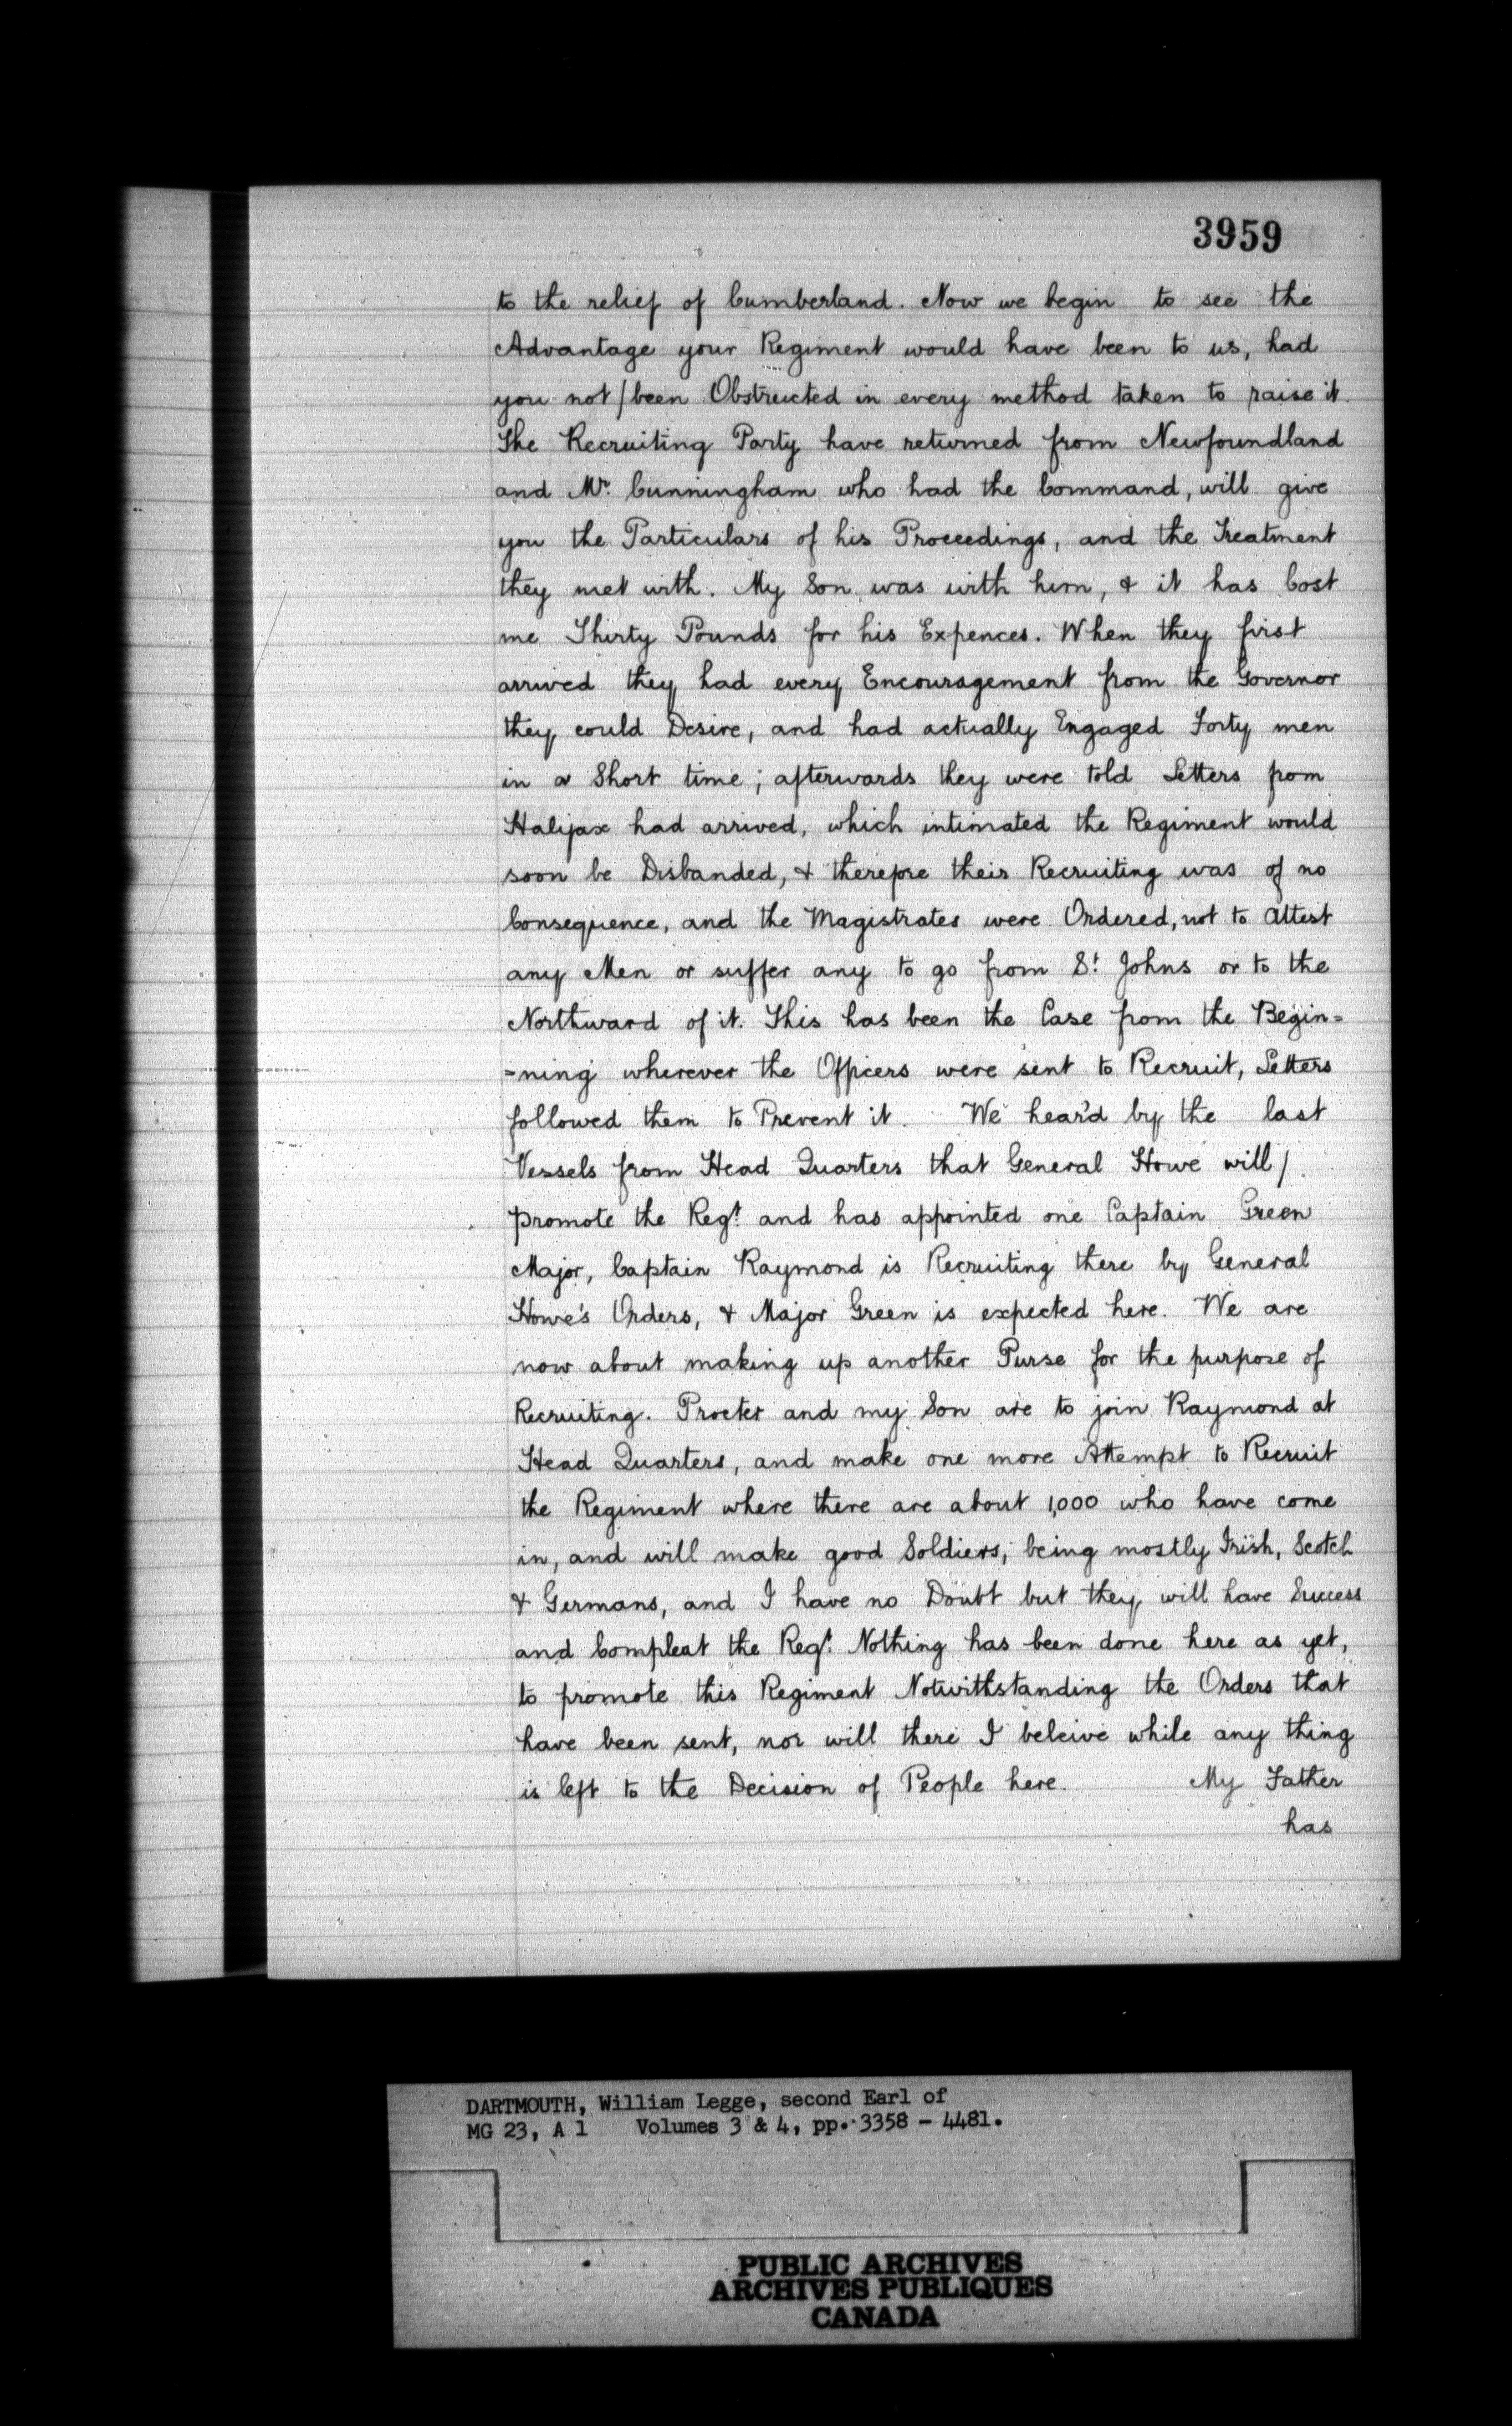 3959
to the relief of Cumberland. Now we begin to see the
Advantage your Regiment would have been to us, had
you not / been Obstructed in every method taken to raise it.
The Recruiting Party have returned from Newfoundland
and Mr. Cunningham who had the Command, will give
you the Particulars of his Proceedings, and the Treatment
they met with. My Son was with him, & it has Cost
me Thirty Pounds for his Expences. When they first
arrived they had every Encouragement from the Governor
they could Desire, and had actually Engaged Forty men
in a Short time; afterwards they were told Letters from
Halifax had arrived, which intimated the Regiment would
soon be Disbanded, & therefore their Recruiting was of no
Consequence, and the Magistrates were Ordered, not to attest
any Men or suffer any to go from St. Johns or to the
Northward of it. This has been the Case from the Begin=
=ning wherever the Officers were sent to Recruit, Letters
followed them to Prevent it. We hear'd by the last
Vessels from Head Quarters that General Howe will /
promote the Regt. and has appointed one Captain Green
Major, Captain Raymond is Recruiting there by General
Howe's Orders, & Major Green is expected here. We are
now about making up another Purse for the purpose of
Recruiting. Procter and my Son are to join Raymond at
Head Quarters, and make one more Attempt to Recruit
the Regiment where there are about 1,000 who have come
in, and will make good Soldiers, being mostly Irish, Scotch
& Germans, and I have no Doubt but they will have Success
and Compleat the Regt. Nothing has been done here as yet,
to promote this Regiment Notwithstanding the Orders that
have been sent, nor will there I beleive while any thing
is left to the Decision of People here. My Father
has
DARTMOUTH, William Legge, second Earl of
MG 23, A 1 Volumes 3 & 4, pp. 3358 - 4481.
PUBLIC ARCHIVES
ARCHIVES PUBLIQUES
CANADA